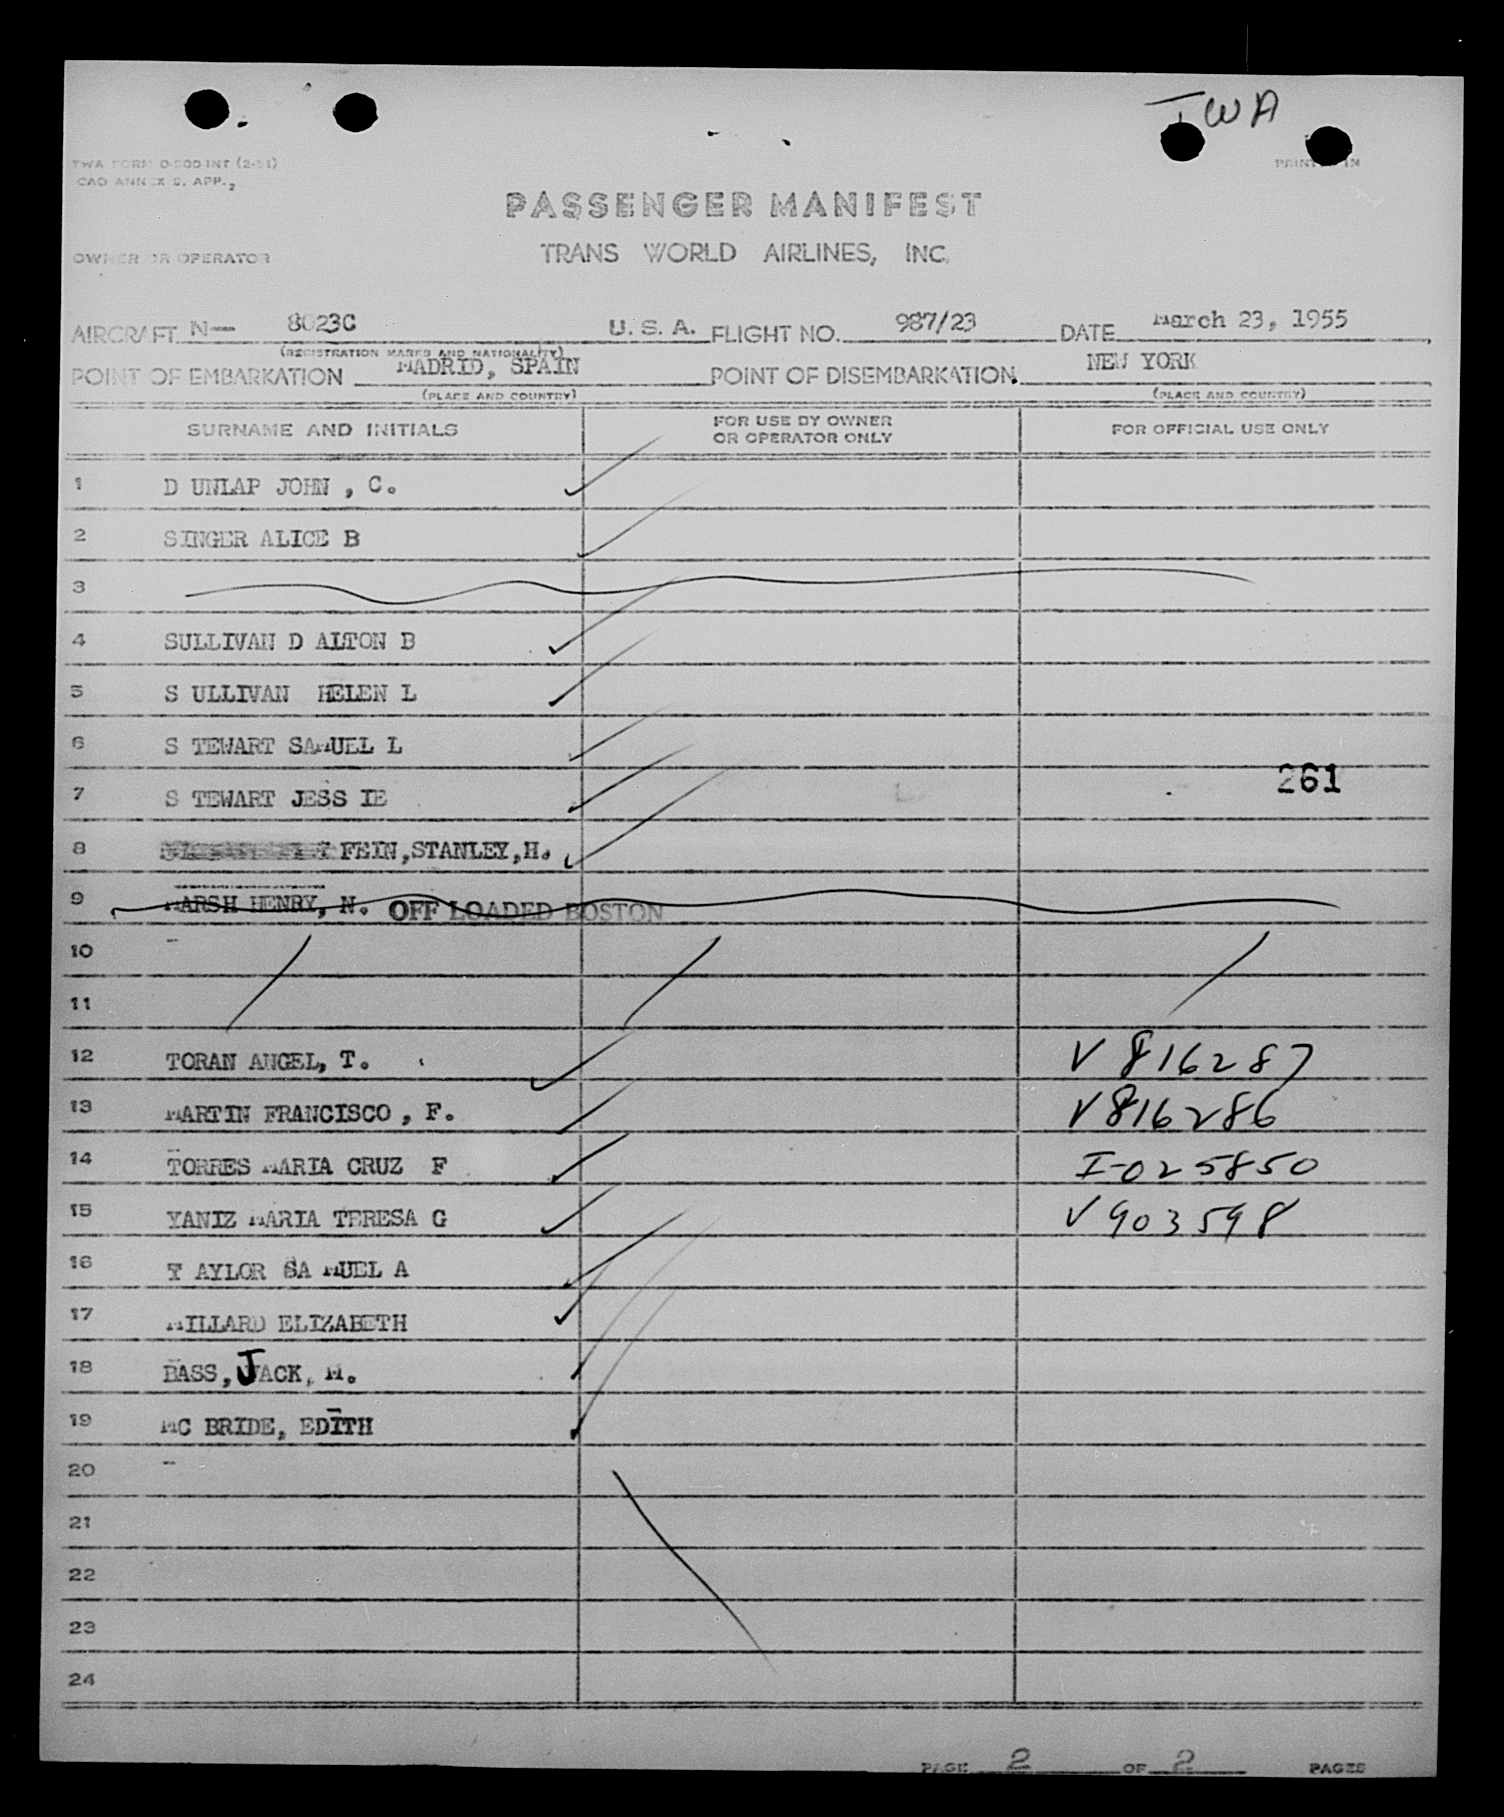 TWA
TWA FORM O-500-INT (2-51)
CAO ANNEX 9, APP. 2
PRINTED IN
PASSENGER MANIFEST
TRANS WORLD AIRLINES, INC.
OWNER OR OPERATOR
AIRCRAFT N— 8023C U. S. A. FLIGHT NO. 987/23 DATE March 23, 1955
(REGISTRATION MARKS AND NATIONALITY)
POINT OF EMBARKATION MADRID, SPAIN POINT OF DISEMBARKATION NEW YORK
(PLACE AND COUNTRY) (PLACE AND COUNTRY)
SURNAME AND INITIALS FOR USE BY OWNER OR OPERATOR ONLY FOR OFFICIAL USE ONLY
1 D UNLAP JOHN , C.
2 SINGER ALICE B
3
4 SULLIVAN D ALTON B
5 S ULLIVAN HELEN L
6 S TEWART SAMUEL L
261
7 S TEWART JESS IE
8 FEIN,STANLEY,H.
9 MARSH HENRY, N. OFF LOADED BOSTON
10
11
12 TORAN ANGEL, T. V 816287
13 MARTIN FRANCISCO , F. V816286
14 TORRES MARIA CRUZ F I-025850
15 YANIZ MARIA TERESA G V903598
16 T AYLOR SA MUEL A
17 MILLARD ELIZABETH
18 BASS, JACK, M.
19 MC BRIDE, EDITH
20
21
22
23
24
PAGE 2 OF 2 PAGES